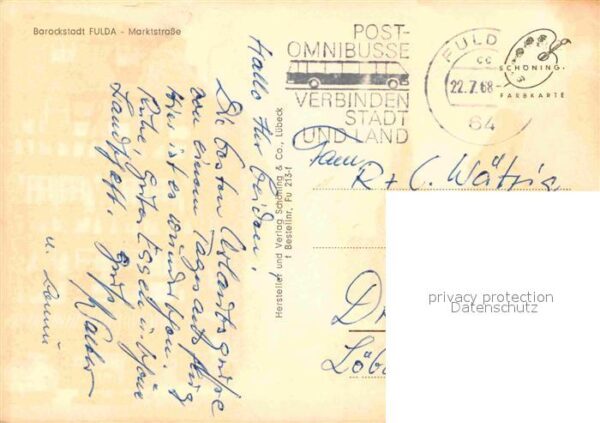 Barockstadt FULDA - Marktstraße
POST-
OMNIBUSSE
VERBINDEN
STADT
UND LAND
FULD
cc
22.7.68
64
SCHÖNING
FARBKARTE
Hallo Ihr Beiden!
Die besten Urlaubsgrüße
von einem Tagesausflug
Hier ist es wunderschön.
Ruhe, gutes Essen u. schöne
Landschaft. Gruß
u.
Hersteller und Verlag Schöning & Co., Lübeck
f Bestellnr. Fu 213-f
Fam.
R + C.
privacy protection
Datenschutz